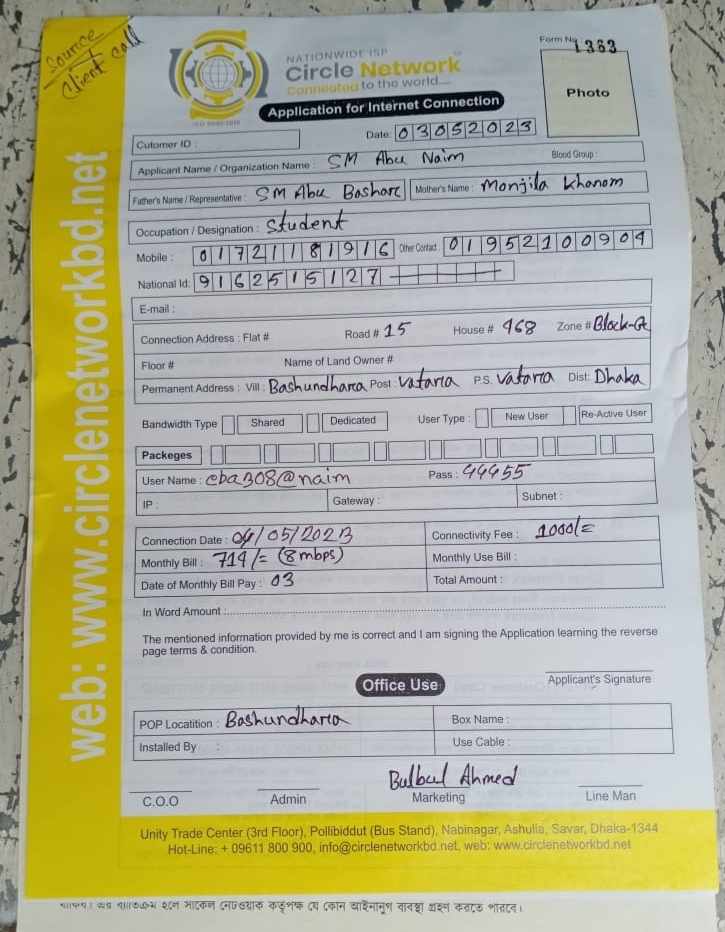 Source
Client call
NATIONWIDE ISP
Circle Network
Connected to the world....
ISO 9001:2015
Form No 1363
Photo
Application for Internet Connection
Cutomer ID :
Date: 03052023
Applicant Name / Organization Name : SM Abu Naim Blood Group :
Father's Name / Representative : SM Abu Bashar Mother's Name : Monjila Khanom
Occupation / Designation : Student
Mobile : 01721181916 Other Contact : 01952100904
National Id: 9162515127
E-mail :
Connection Address : Flat # Road # 15 House # 468 Zone # Block-G
Floor # Name of Land Owner #
Permanent Address : Vill : Bashundhara Post : Vatara P.S. Vatara Dist: Dhaka
Bandwidth Type Shared Dedicated User Type : New User Re-Active User
Packeges
User Name : cba308@naim Pass : 44455
IP : Gateway : Subnet :
Connection Date : 04/05/2023 Connectivity Fee : 1000/=
Monthly Bill : 714/= (8mbps) Monthly Use Bill :
Date of Monthly Bill Pay : 03 Total Amount :
In Word Amount :
The mentioned information provided by me is correct and I am signing the Application learning the reverse
page terms & condition.
Applicant's Signature
Office Use
POP Locatition : Bashundhara Box Name :
Installed By : Use Cable :
Bulbul Ahmed
C.O.O Admin Marketing Line Man
Unity Trade Center (3rd Floor), Pollibiddut (Bus Stand), Nabinagar, Ashulia, Savar, Dhaka-1344
Hot-Line: + 09611 800 900, info@circlenetworkbd.net, web: www.circlenetworkbd.net
web: www.circlenetworkbd.net
হলে সার্কেল নেটওয়াক কর্তৃপক্ষ যে কোন আইনানুগ ব্যবস্থা গ্রহণ করতে পারবে।